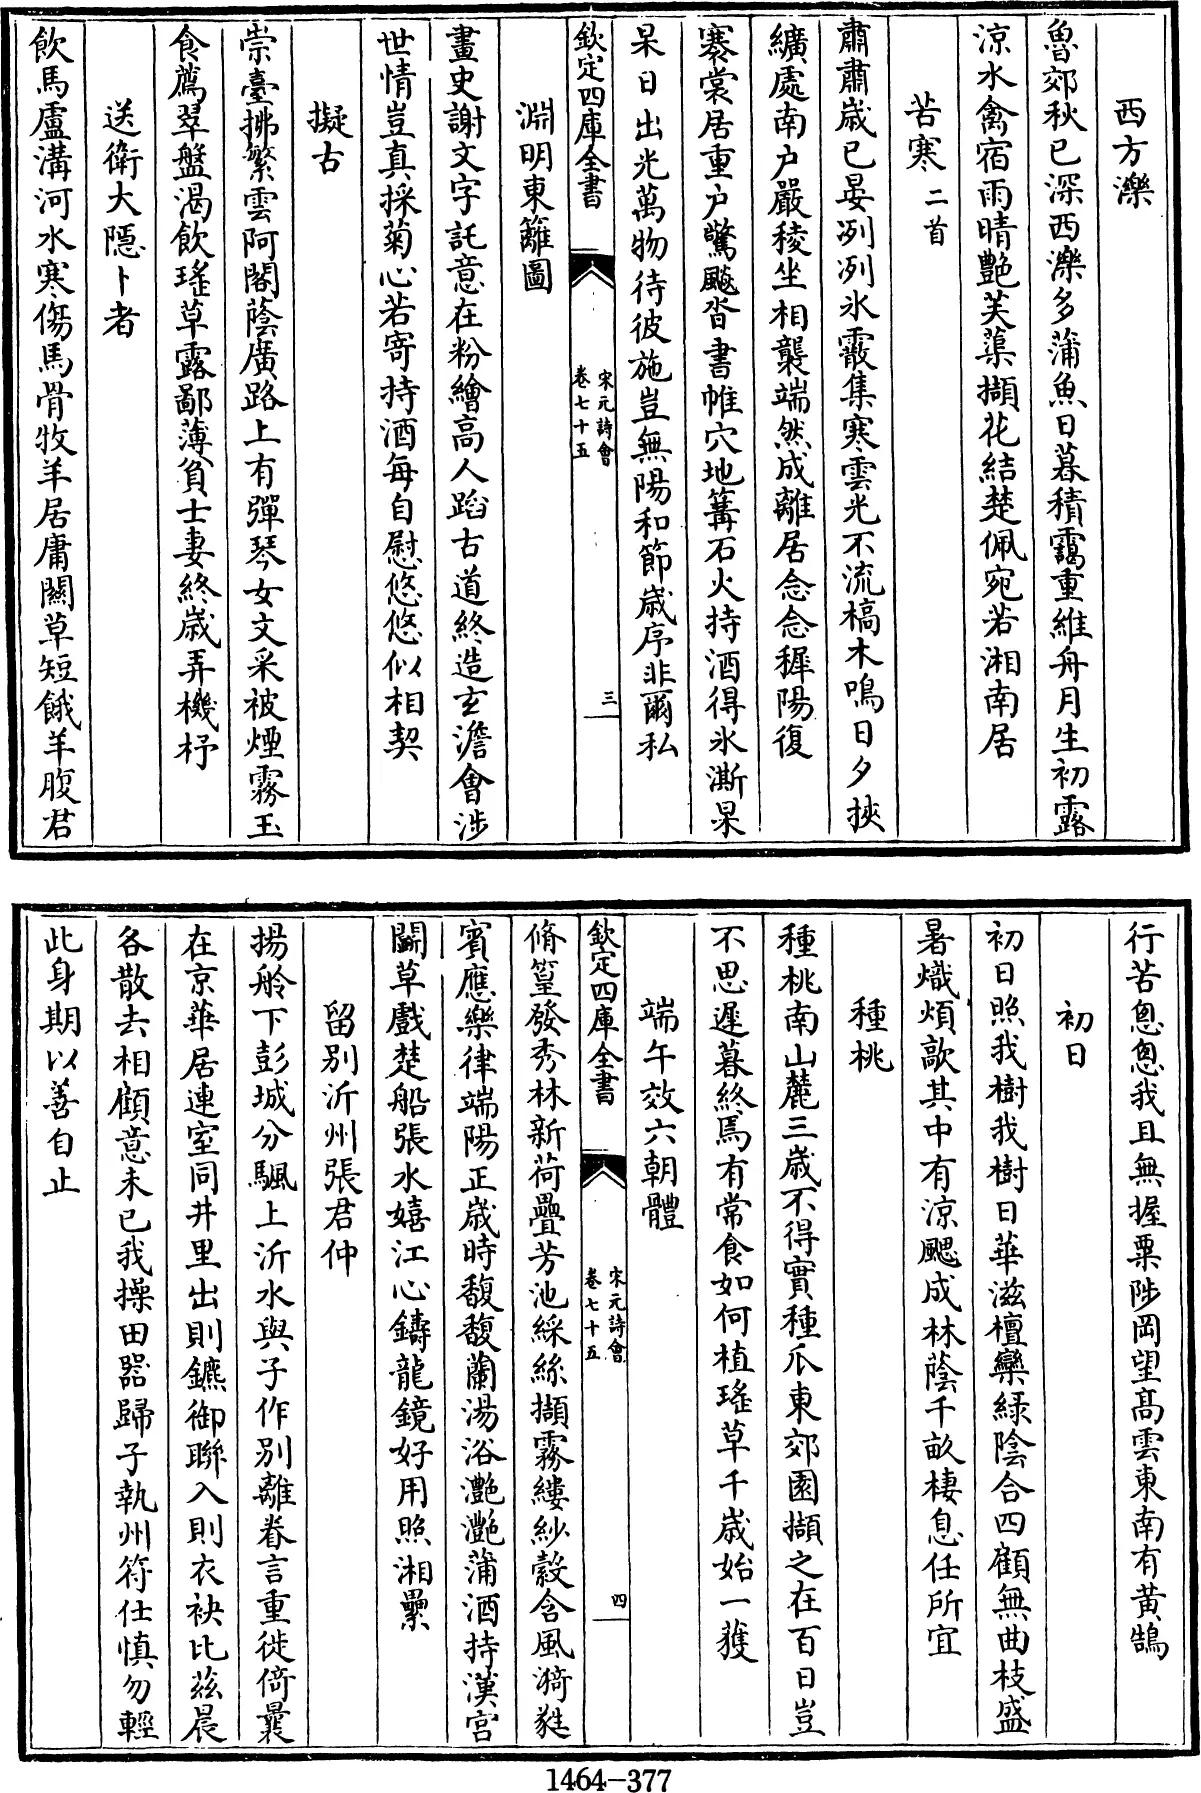 西方濼
魯郊秋已深西濼多蒲魚日暮積靄重維舟月生初露
涼水禽宿雨晴艷芙蕖擷花結楚佩宛若湘南居
苦寒二首
肅肅歳已晏冽冽氷霰集寒雲光不流槁木鳴日夕挾
纊處南户嚴稜坐相襲端然成離居念念穉陽復
褰裳居重户驚飈沓書帷穴地篝石火持酒得氷澌杲
杲日出光萬物待彼施豈無陽和節歳序非爾私
欽定四庫全書
宋元詩會
卷七十五
三
淵明東籬圖
畫史謝文字託意在粉繪高人蹈古道終造玄澹會涉
世情豈真採菊心若寄持酒每自慰悠悠似相契
擬古
崇臺拂繁雲阿閣蔭廣路上有彈琴女文采被煙霧玉
食薦翠盤渴飲瑤草露鄙薄貧士妻終歳弄機杼
送衛大隠卜者
飲馬盧溝河水寒傷馬骨牧羊居庸闗草短餓羊腹君
行苦怱怱我且無握粟陟岡望髙雲東南有黄鵠
初日
初日照我樹我樹日華滋檀欒緑陰合四顧無曲枝盛
暑熾煩歊其中有涼颸成林蔭千畝棲息任所宜
種桃
種桃南山麓三歳不得實種瓜東郊園擷之在百日豈
不思遲暮終焉有常食如何植瑤草千歳始一獲
端午效六朝體
欽定四庫全書
宋元詩會
卷七十五
四
脩篁發秀林新荷疊芳池綵絲擷霧縷紗縠含風漪蕤
賓應樂律端陽正歳時馥馥蘭湯浴灔灔蒲酒持漢宫
鬭草戲楚船張水嬉江心鑄龍鏡好用照湘纍
留别沂州張君仲
揚舲下彭城分颿上沂水與子作别離眷言重徙倚曩
在京華居連室同井里出則鑣御聯入則衣袂比兹晨
各散去相顧意未已我操田器歸子執州符仕慎勿輕
此身期以善自止
1464-377